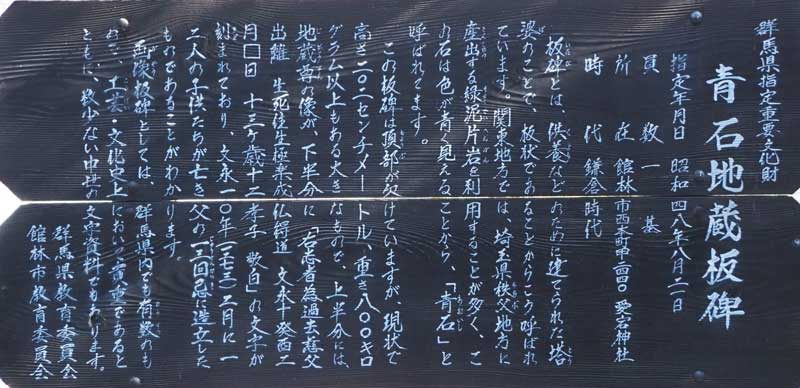 群馬県指定重要文化財
青石地蔵板碑
指定年月日 昭和四八年八月二一日
員数 一基
所在 館林市西本町甲二四四〇 愛宕神社
時代 鎌倉時代
板碑とは、供養などのために建てられた塔
婆のことで、板状であることからこう呼ばれ
ています。関東地方では、埼玉県秩父地方に
産出する緑泥片岩を利用することが多く、こ
の石は色が青く見えることから、「青石」と
呼ばれてます。
この板碑は頂部が欠けていますが、現状で
高さ二〇二センチメートル、重さ八〇〇キロ
グラム以上もある大きなもので、上半分には、
地蔵尊の像が、下半分に「右志者為過去慈父
出離 生死往生極楽成仏得道 文永十癸酉二
月□日 十三ヶ歳十二孝子 敬白」の文字が
刻まれており、文永一〇年(一二七三)二月に一
二人の子供たちが亡き父の一三回忌に造立した
ものであることがわかります。
画像板碑としては、群馬県内でも有数のも
ので、工芸・文化史上において貴重であると
ともに、数少ない中世の文字資料でもあります。
群馬県教育委員会
館林市教育委員会